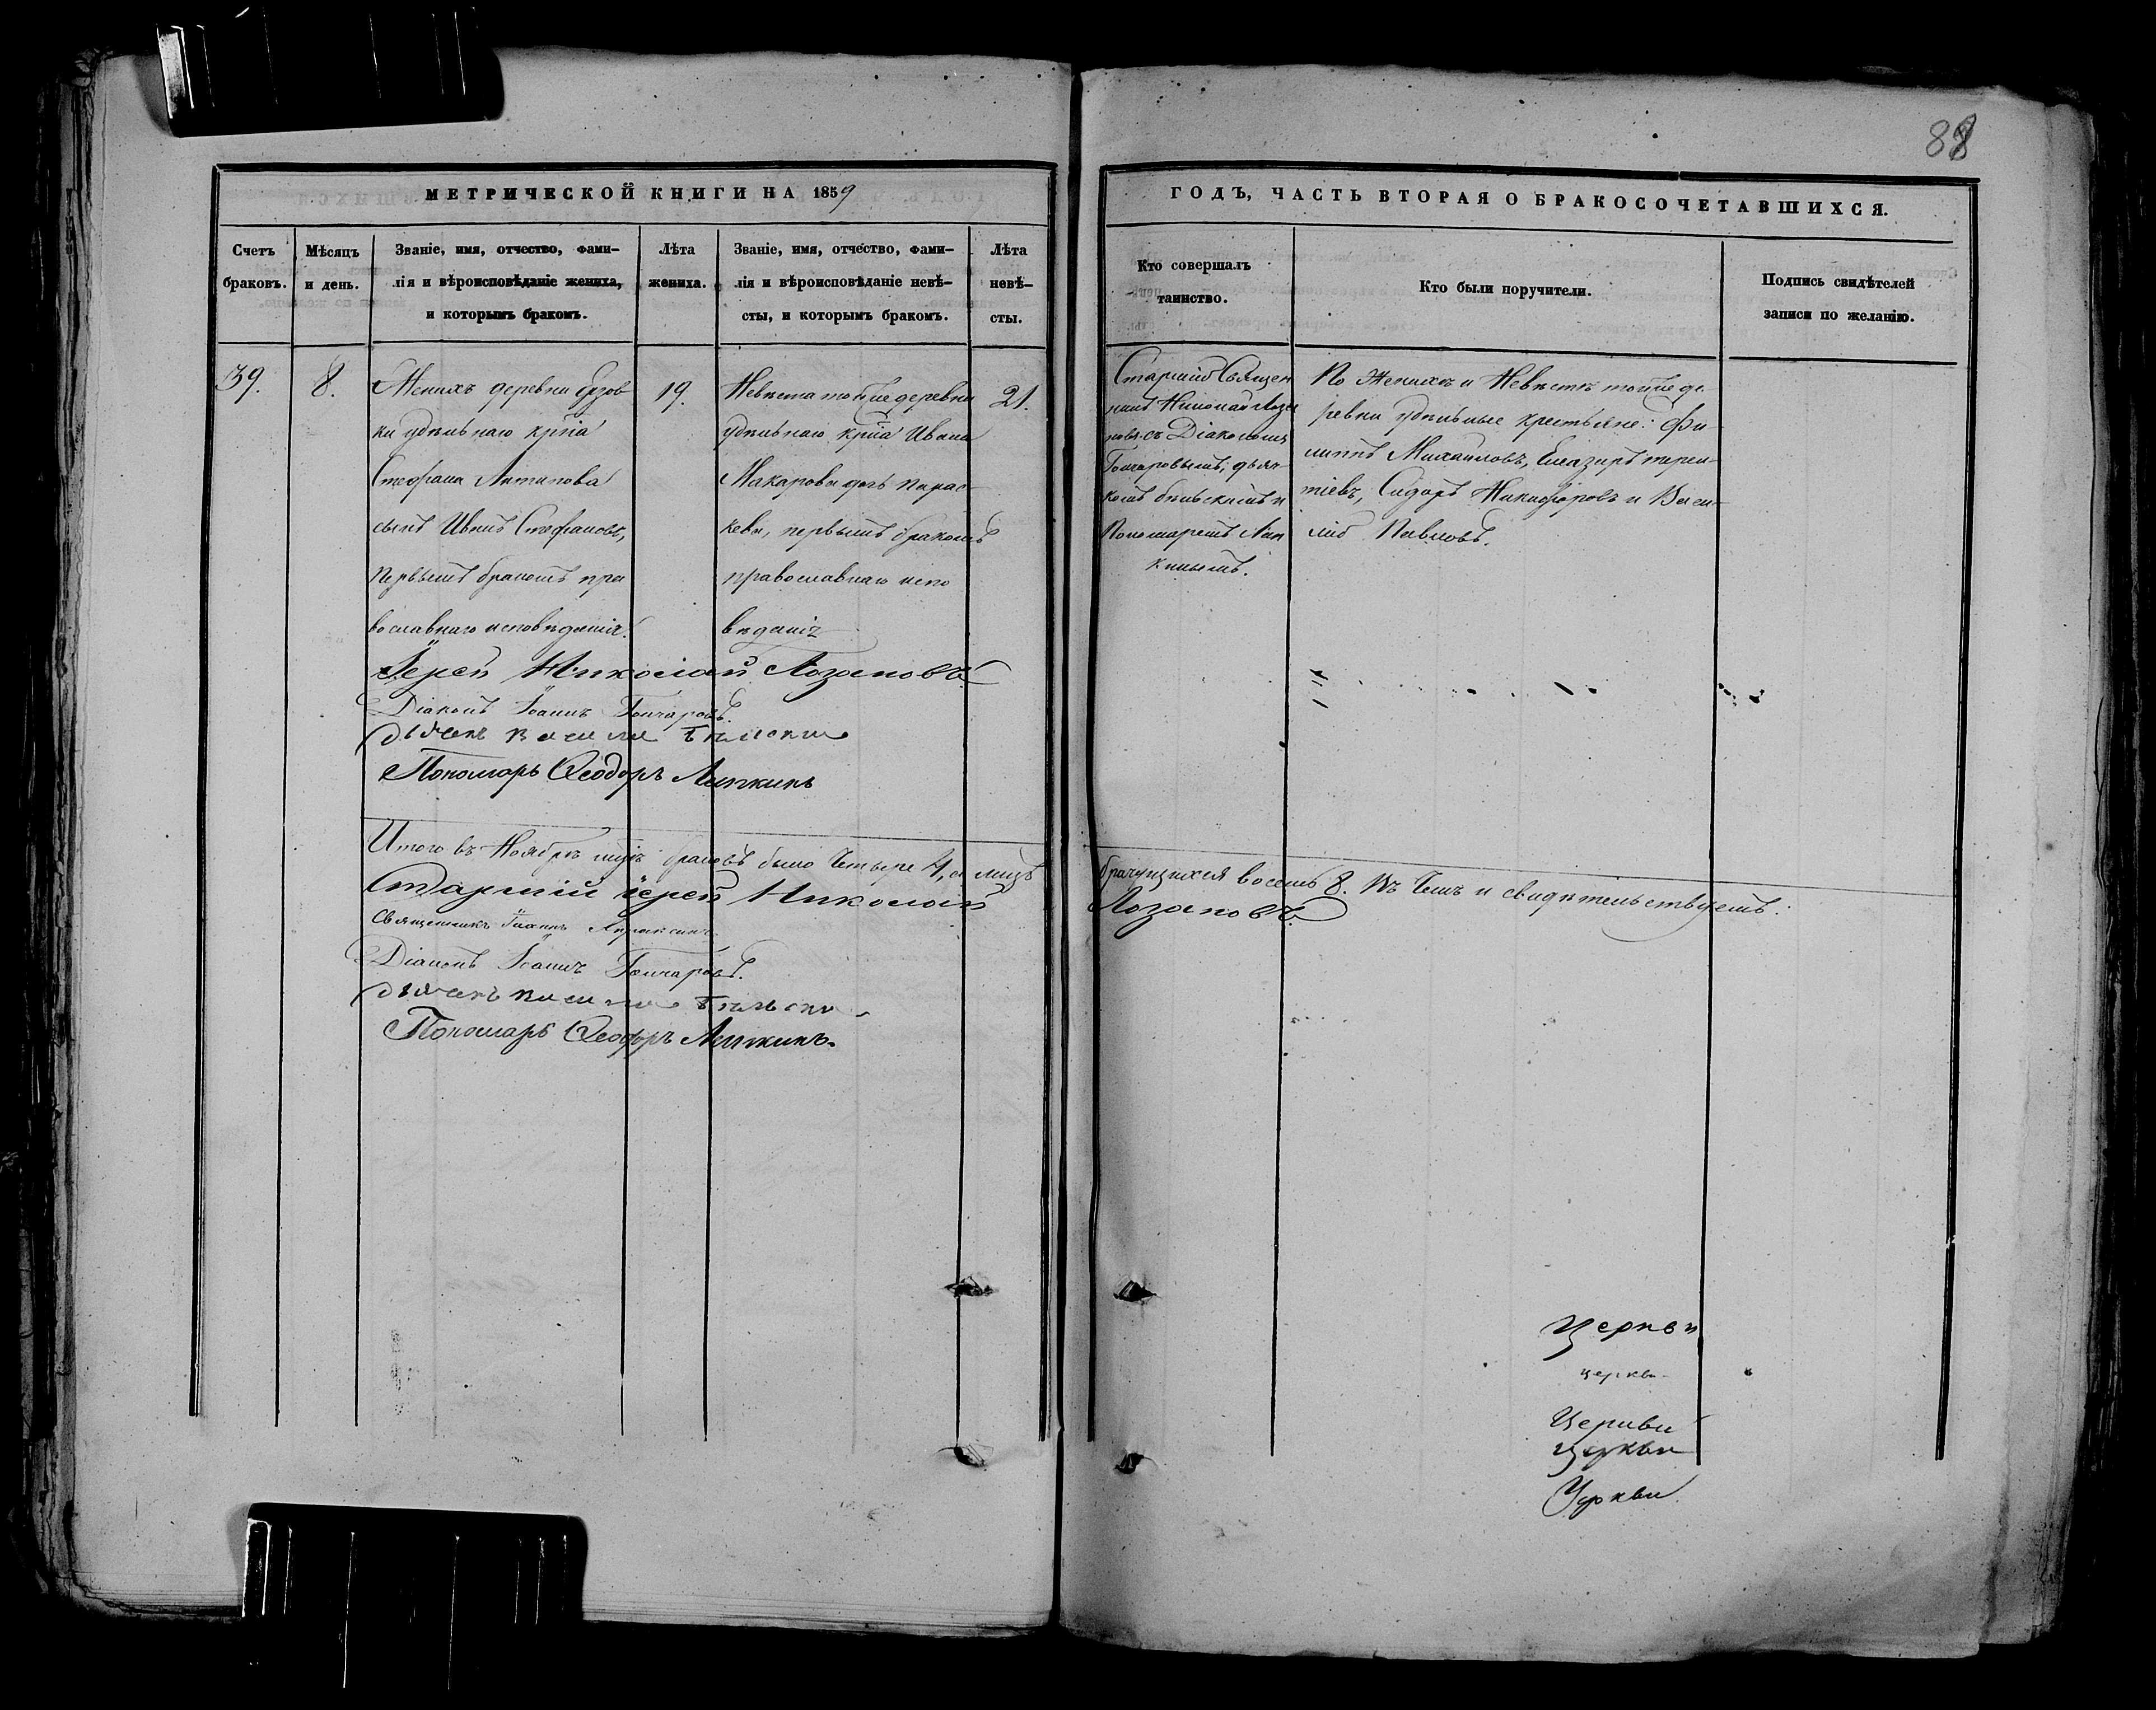 88
МЕТРИЧЕСКОЙ КНИГИ НА 1859
ГОДЪ, ЧАСТЬ ВТОРАЯ О БРАКОСОЧЕТАВШИХСЯ.
Счетъ
браковъ.
Мѣсяцъ
и день.
Званіе, имя, отчество, фами-
лія и вѣроисповѣданіе жениха,
и которымъ бракомъ.
Лѣта
жениха.
Званіе, имя, отчество, фами-
лія и вѣроисповѣданіе невѣ-
сты, и которымъ бракомъ.
Лѣта
невѣ-
сты.
Кто совершалъ
таинство.
Кто были поручители.
Подпись свидѣтелей
записи по желанію.
39.
8.
Женихъ деревни Бузов
ки удѣльнаго кр҃піа
Стефана Антипова
сынъ Иванъ Стефановъ,
первымъ бракомъ пра
вославнаго исповѣданія.
19.
Невѣста той же деревни
удѣльнаго кр҃піа Ивана
Макарова дочь Парас
кева, первымъ бракомъ
православнаго испо
вѣданія
21.
Старшій Священ
никъ Николай Лоза
новъ съ Діакономъ
Гончаровымъ, дьяч
комъ Бѣльскимъ и
Пономаремъ Лап
кинымъ.
По Женихѣ и Невѣстѣ той же де
ревни удѣльные крестьяне: Фи
липпъ Михаиловъ, Елеазаръ Терен
тіевъ, Сидоръ Никифоровъ и Васи
лій Павловъ.
Іерей Николай Лозановъ
Діаконъ Іоаннъ Гончаровъ.
Дьячекъ Василій Бѣльскій
Пономарь Ѳеодоръ Лапкинъ
Итого въ Ноябрѣ м҃цѣ браковъ было Четыре 4, а лицъ
брачущихся восемь 8. Въ Чемъ и свидѣтельствуемъ:
Старшій іерей Николай
Лозановъ
Священникъ Іоаннъ
Діаконъ Іоаннъ Гончаровъ.
Дьячекъ Василій Бѣльскій
Пономарь Ѳеодоръ Лапкинъ.
Церкви
церкви
Церкви
Церкви
Церкви